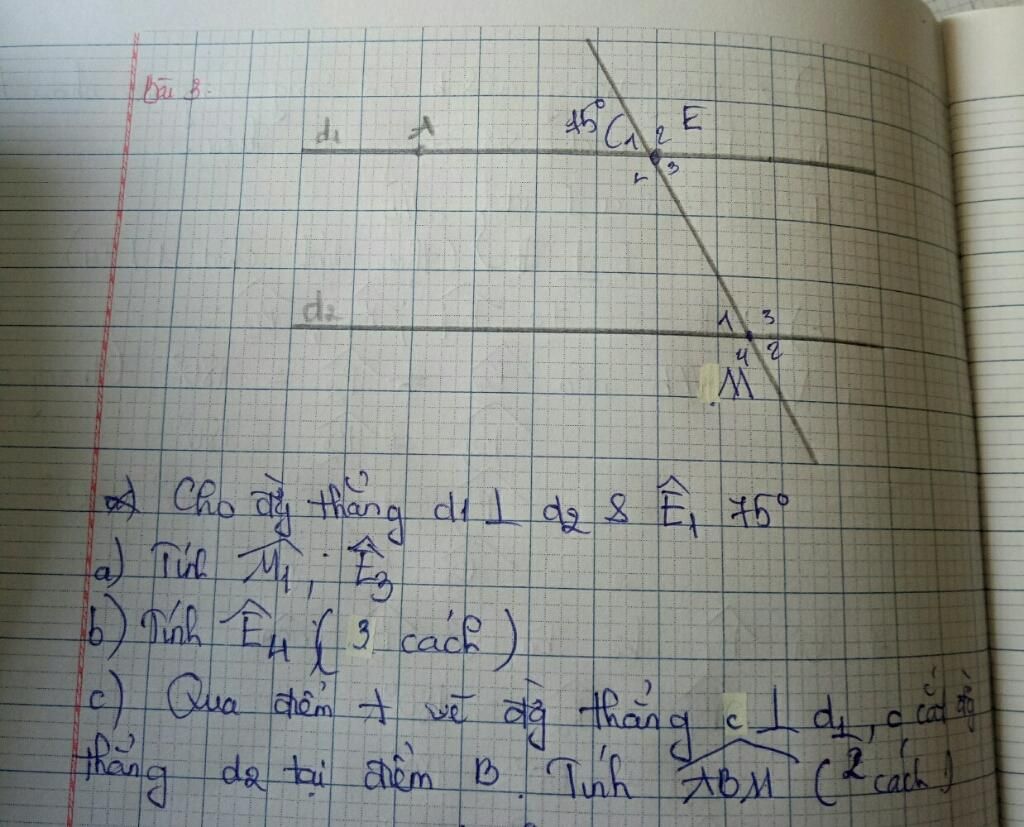 Bài 3.
d1 A 75° 1 2 E
4 3
d2 1 3
4 2
M
Cho đg thẳng d1 ⊥ d2 & Ê1 75°
a) Tính M̂1, Ê3
b) Tính Ê4 ( 3 cách )
c) Qua điểm A vẽ đg thẳng c ⊥ d1, c cắt đg
thẳng d2 tại điểm B. Tính ABM ( 2 cách )